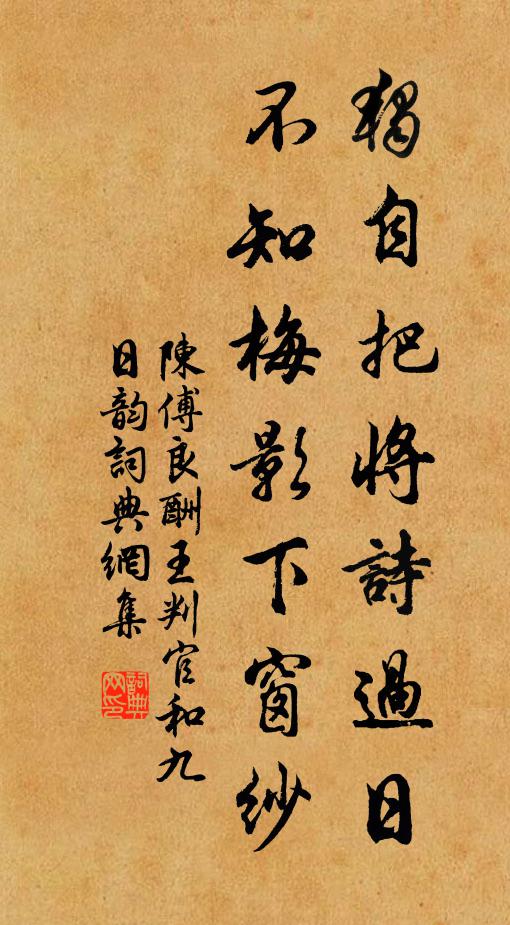 獨自把將詩過日
不知梅影下窗紗
陳傅良酬王判官和九
日韵詞典網集
詞典
网印